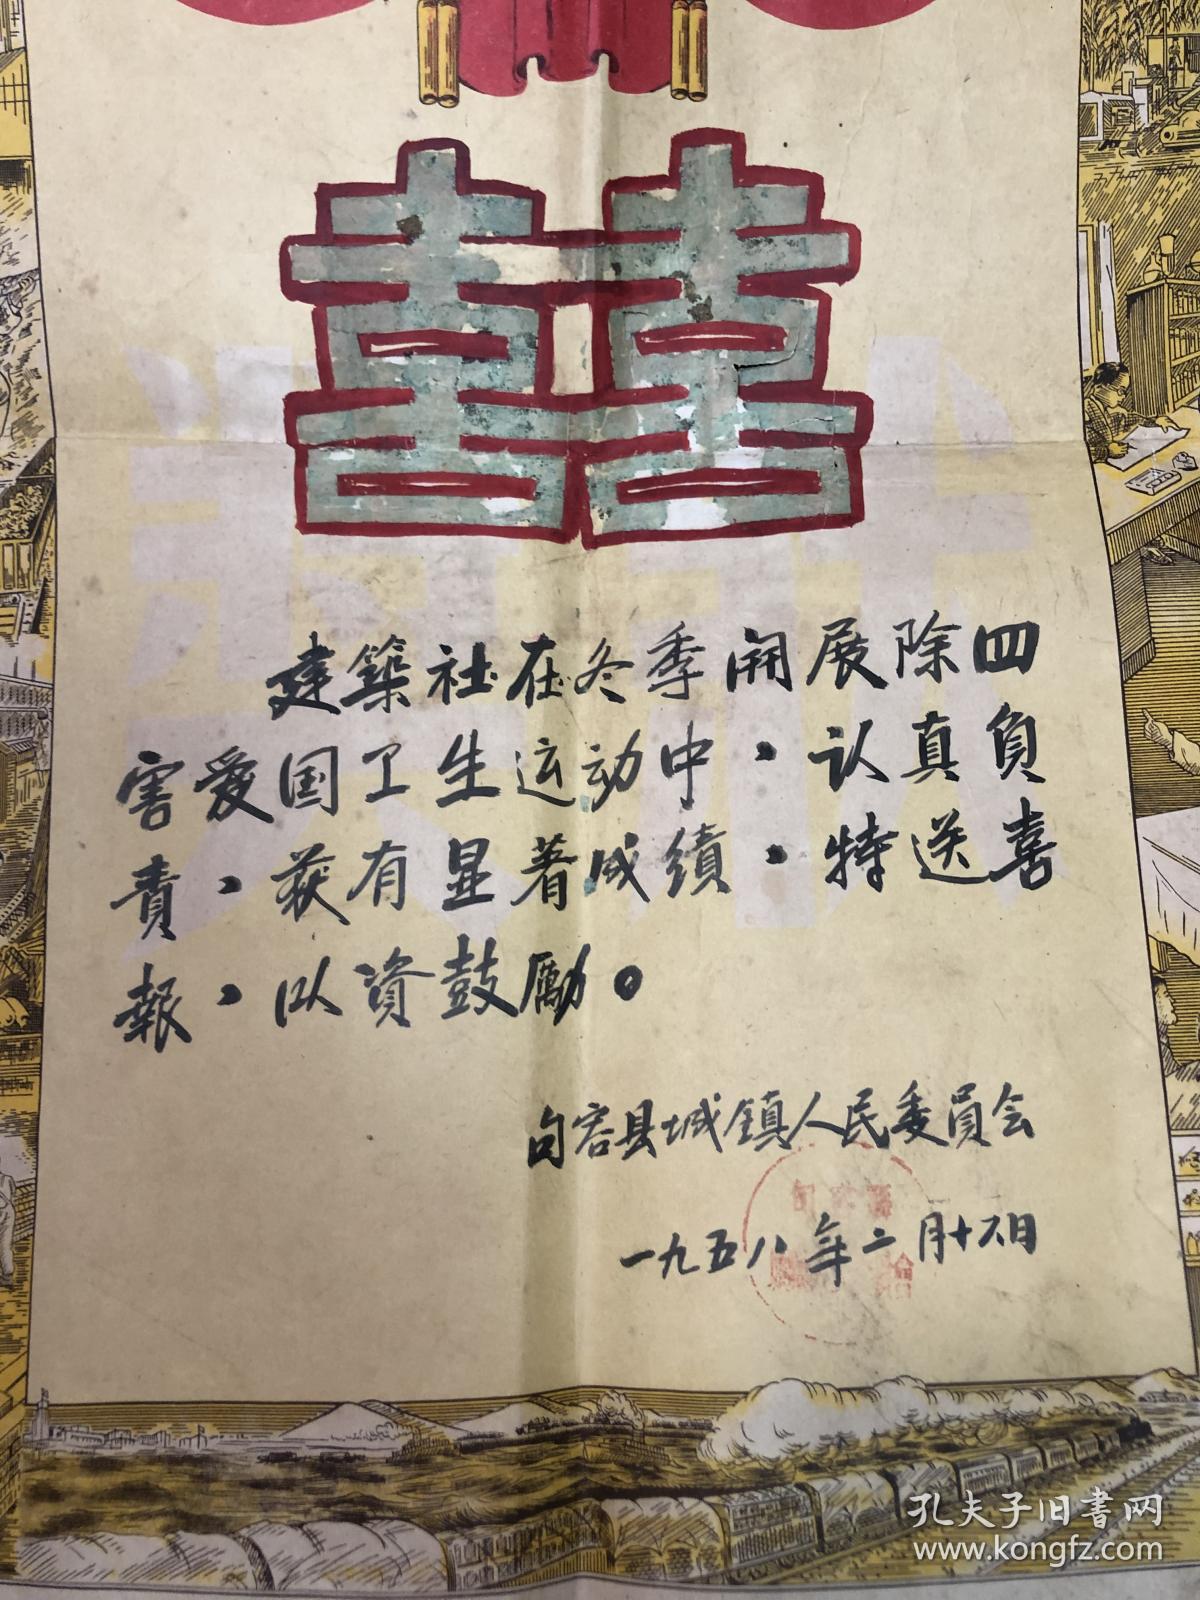 囍
建築社在冬季開展除四
害爱国卫生运动中，认真負
責，获有显著成绩，特送喜
報，以資鼓勵。
句容县城鎮人民委員会
一九五八年二月十六日
孔夫子旧书网
www.kongfz.com